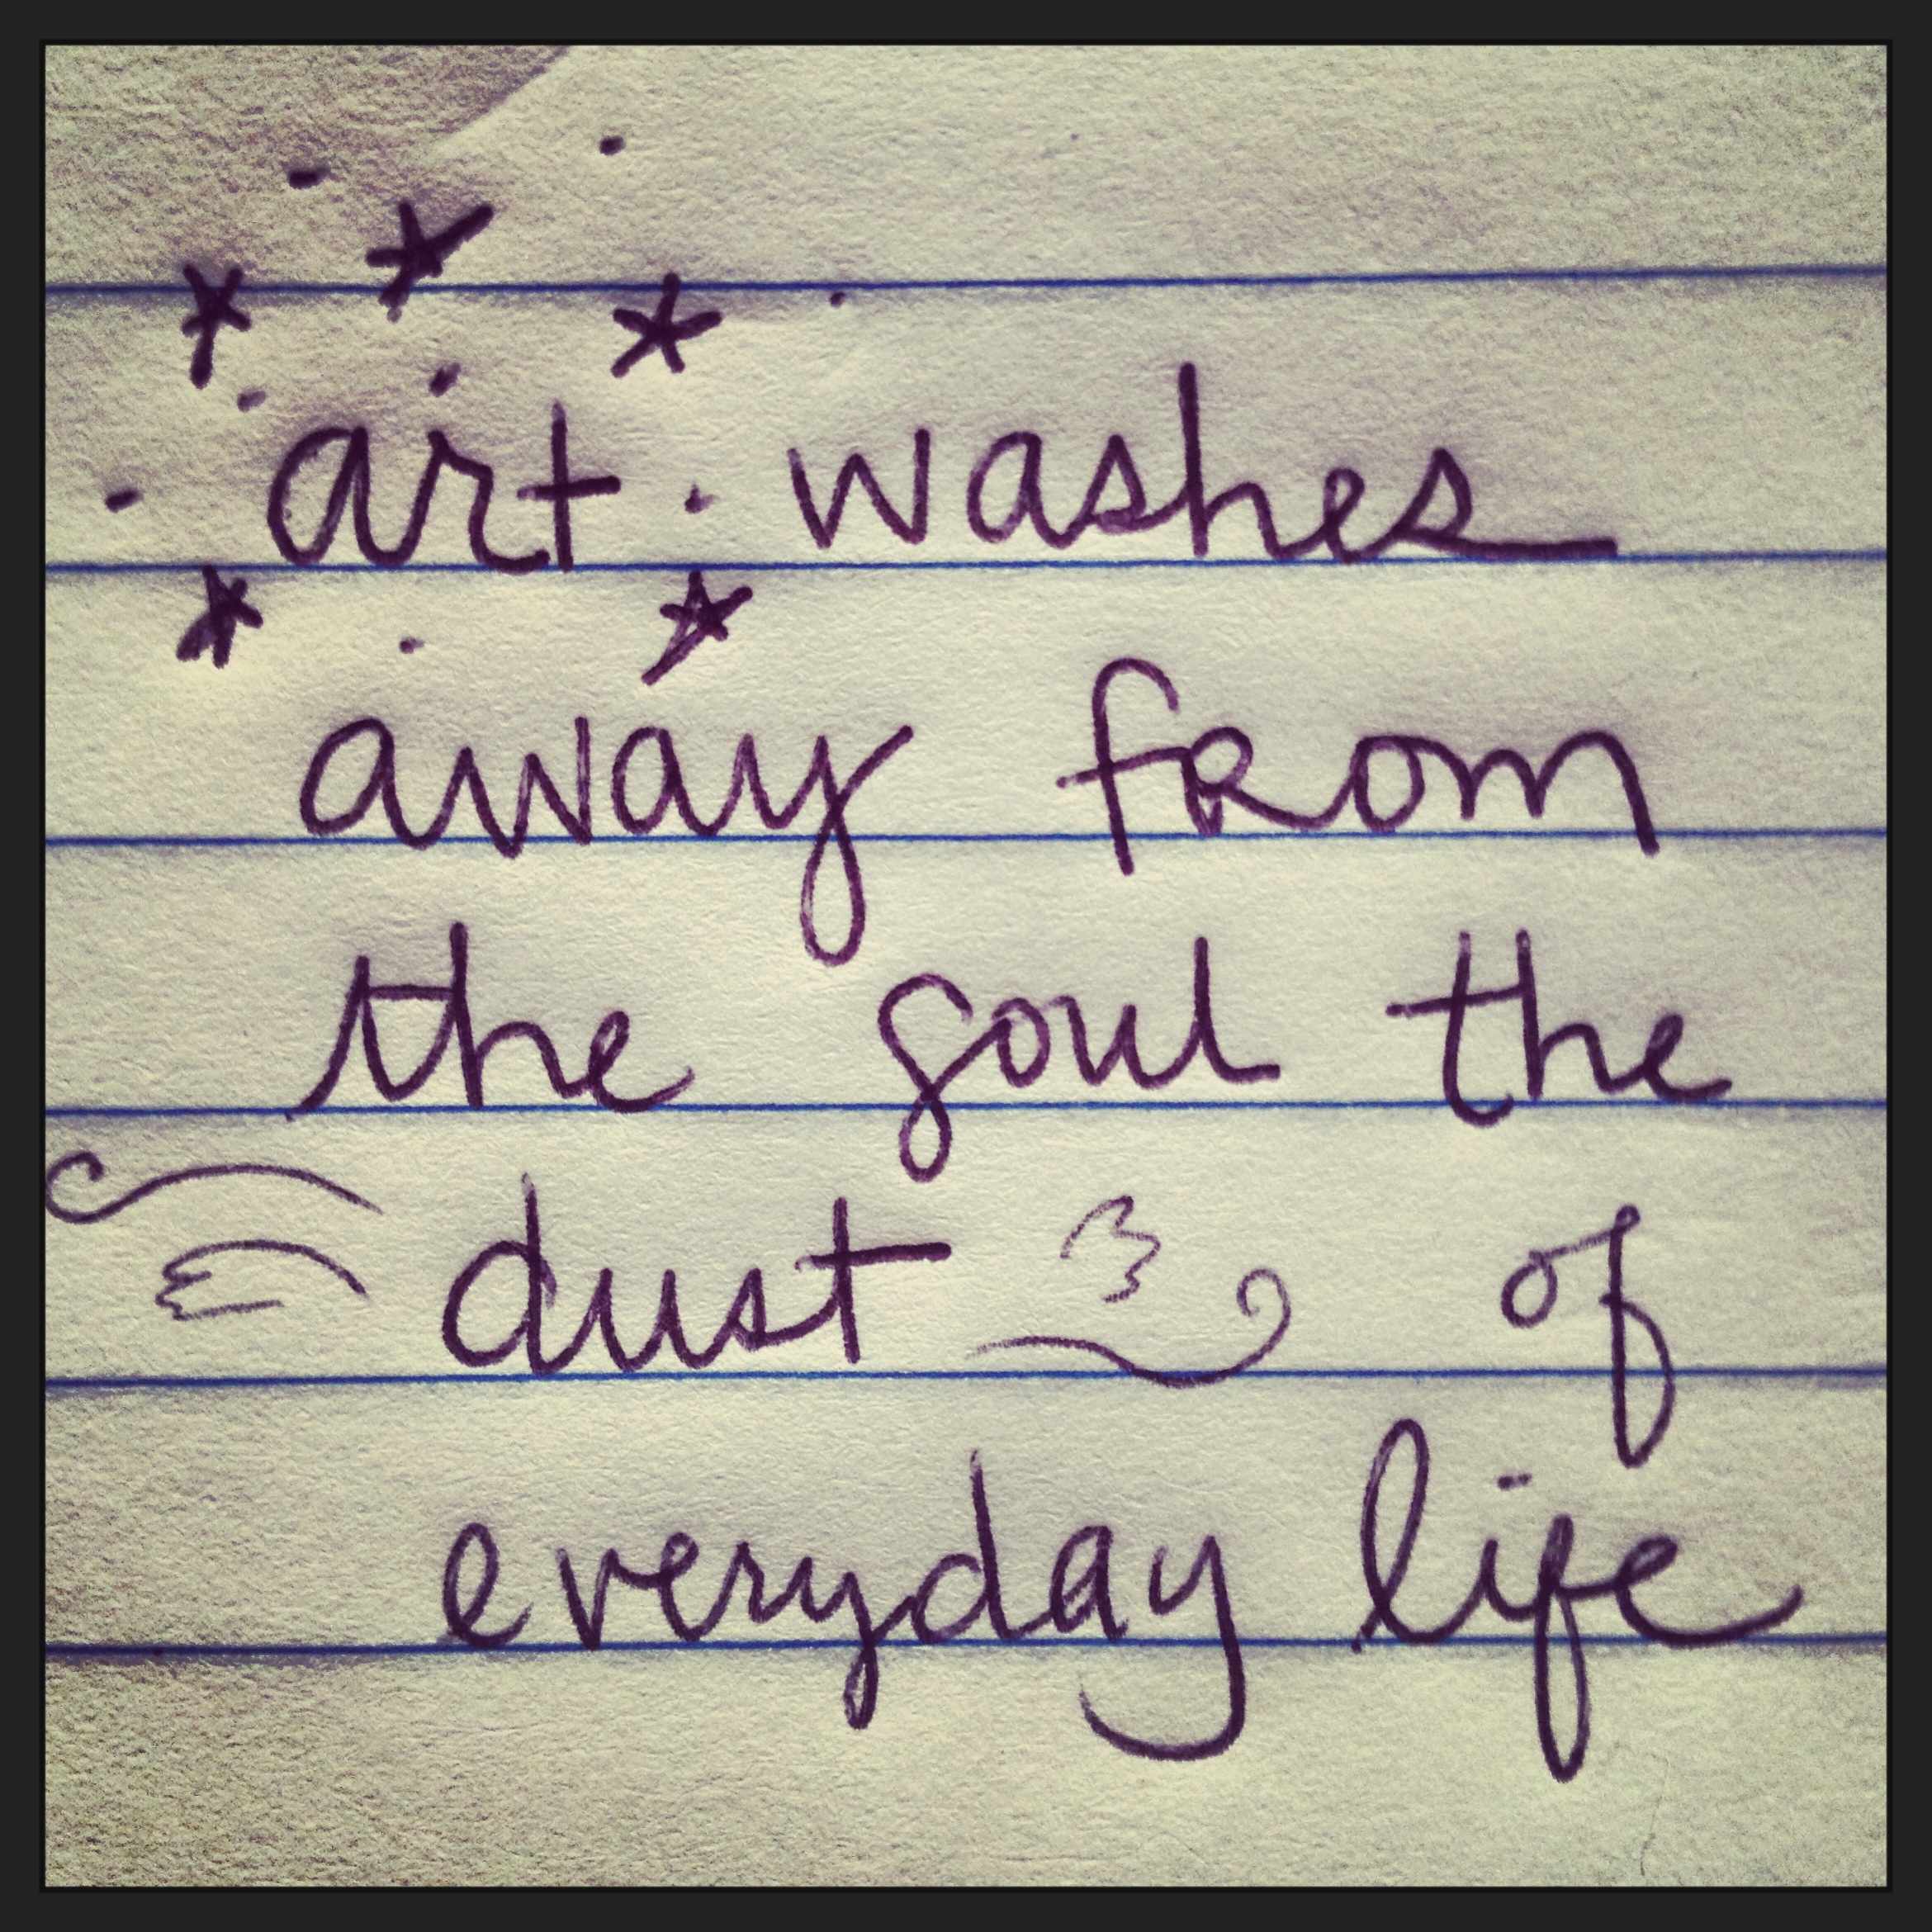 art washes
away from
the soul the
dust of
everyday life